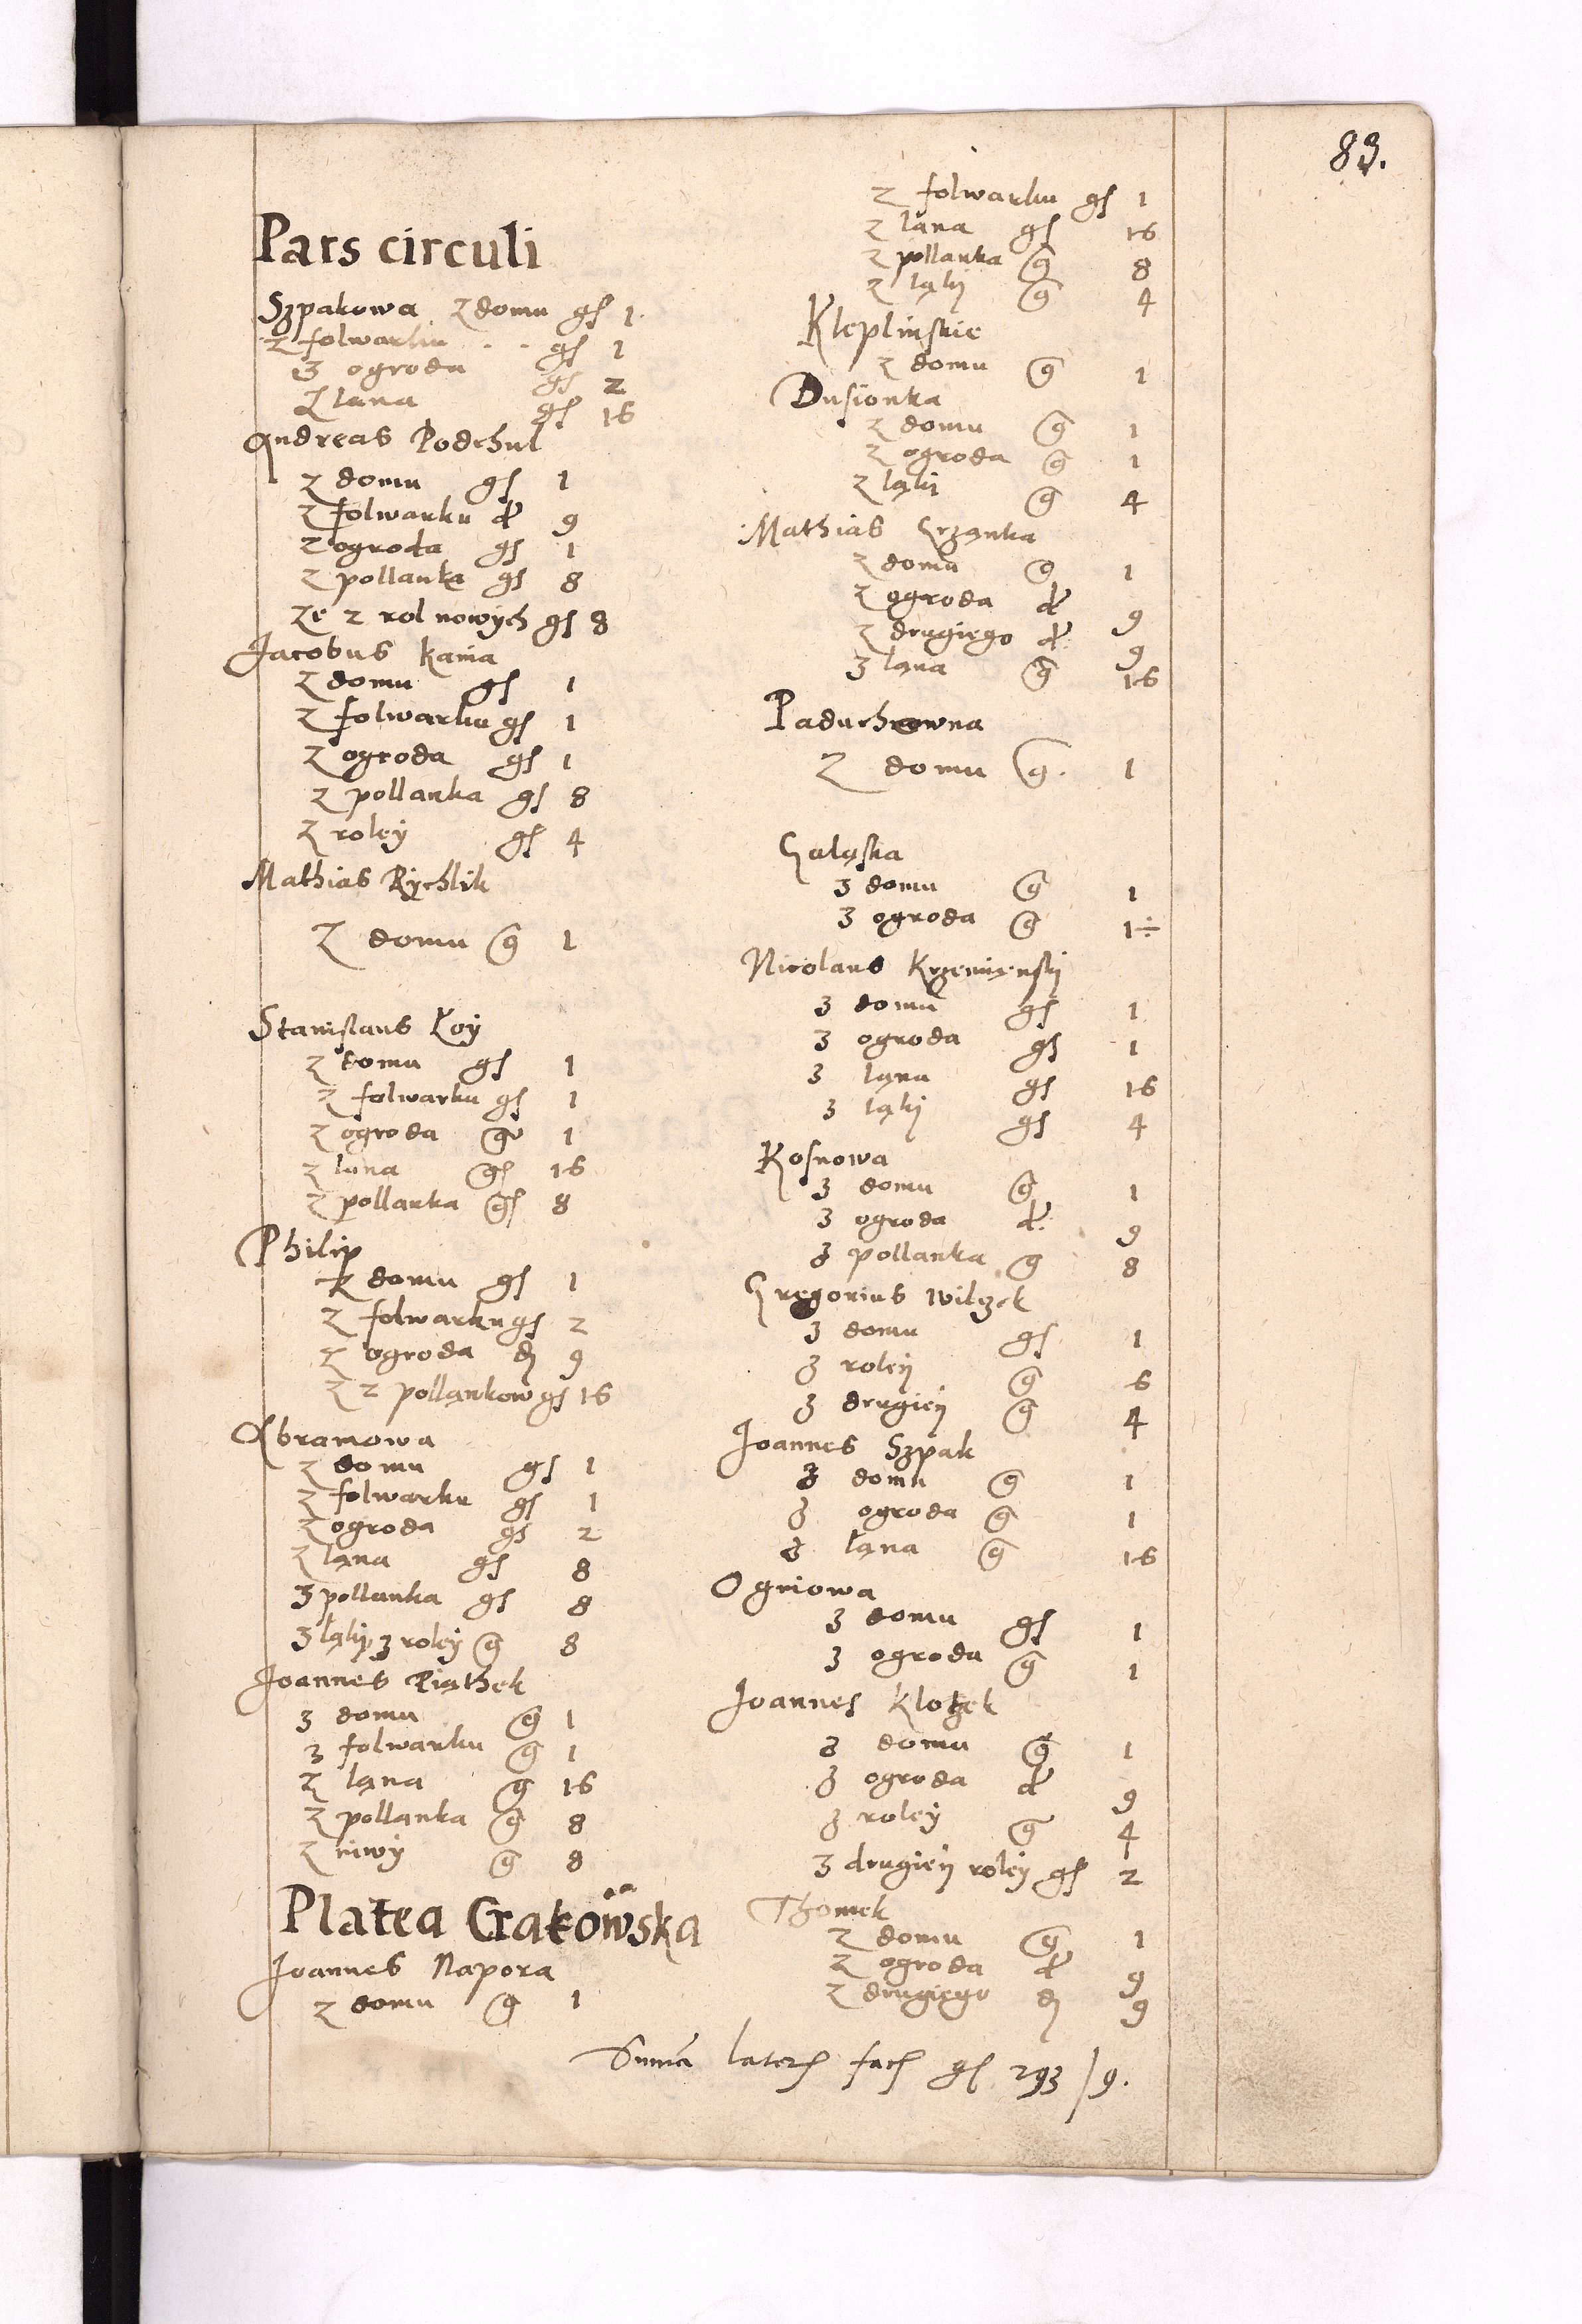 83.
Pars circuli
Szpakowa z domu gs 1
z folwarku . . gs 1
z ogroda gs 2
z lana gs 16
Andreas Podchul
z domu gs 1
z folwarku d 9
z ogroda gs 1
z pollanka gs 8
ze 2 rol nowych gs 8
Jacobus kania
z domu gs 1
z folwarku gs 1
z ogroda gs 1
z pollanka gs 8
z roley gs 4
Mathias Rychlik
z domu g 1
Stanislaus Łoy
z domu gs 1
z folwarku gs 1
z ogroda g 1
z lana gs 16
z pollanka gs 8
Philip
z domu gs 1
z folwarku gs 2
z ogroda d 9
z 2 pollankow gs 16
Abramowa
z domu gs 1
z folwarku gs 1
z ogroda gs 2
zląna gs 8
3 pollanka gs 8
3 ląky, 3 roley g 8
Joannes Piąthek
3 domu g 1
3 folwarku g 1
z ląna g 16
z pollanka g 8
z niwy g 8
Platea Crakowska
Joannes Napora
z domu g 1
z folwarku gs 1
z lana gs 16
z pollanka g 8
z ląkj g 4
Kleplinskie
z domu g 1
Dusionka
z domu g 1
z ogroda g 1
z ląkj g 4
Mathias Grzanka
z domu g 1
z ogroda d 9
z drugiego d 9
3 lana g 16
Paduchowna
z domu g. 1
Galąska
3 domu g 1
3 ogroda g 1÷
Nicolaus Krzemienskj
3 domu gs 1
3 ogroda gs 1
3 ląna gs 16
3 ląkj gs 4
Kosnowa
3 domu g 1
3 ogroda d 9
3 pollanka g 8
Gregorius Wilczek
3 domu gs 1
3 roley g 6
3 drugiey g 4
Joannes Szpak
3 domu g 1
3 ogroda g 1
3 łąna g 16
Ogniowa
3 domu gs 1
3 ogroda g 1
Joannes Klotzek
3 domu g 1
3 ogroda d 9
3 roley g 4
3 drugiey roley gs 2
Thomek
z domu g 1
z ogroda d 9
z drugiego d 9
Suma lateris facit gs 293 / 9.